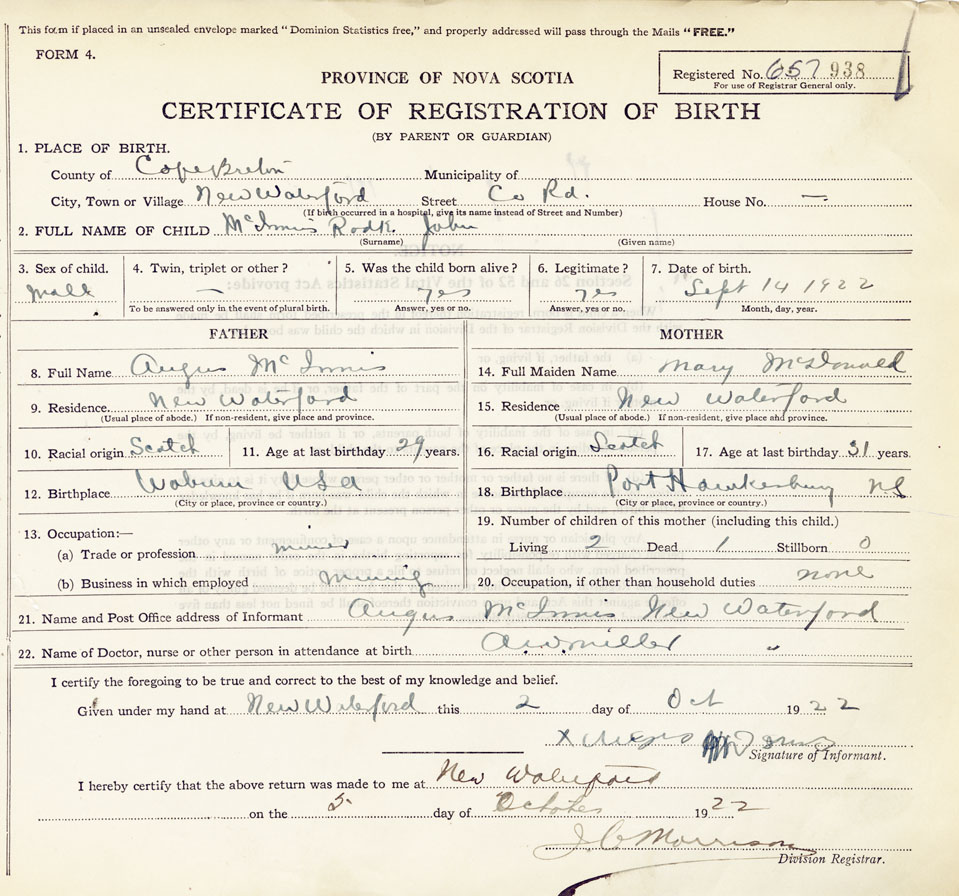 This form if placed in an unsealed envelope marked "Dominion Statistics free," and properly addressed will pass through the Mails "FREE."
FORM 4.
Registered No. 657 938
For use of Registrar General only.
PROVINCE OF NOVA SCOTIA
CERTIFICATE OF REGISTRATION OF BIRTH
(BY PARENT OR GUARDIAN)
1. PLACE OF BIRTH.
County of Cape Breton Municipality of
City, Town or Village New Waterford Street Co Rd. House No. —
(If birth occurred in a hospital, give its name instead of Street and Number)
2. FULL NAME OF CHILD McInnis Rodk. John
(Surname) (Given name)
3. Sex of child. 4. Twin, triplet or other? 5. Was the child born alive? 6. Legitimate? 7. Date of birth.
Male — yes yes Sept 14 1922
To be answered only in the event of plural birth. Answer, yes or no. Answer, yes or no. Month, day, year.
FATHER MOTHER
8. Full Name Angus McInnis 14. Full Maiden Name Mary McDonald
9. Residence New Waterford 15. Residence New Waterford
(Usual place of abode.) If non-resident, give place and province. (Usual place of abode.) If non-resident, give place and province.
10. Racial origin Scotch 11. Age at last birthday 29 years. 16. Racial origin Scotch 17. Age at last birthday 31 years.
12. Birthplace Woburn USA 18. Birthplace Port Hawkesbury NS
(City or place, province or country.) (City or place, province or country.)
13. Occupation:— 19. Number of children of this mother (including this child.)
(a) Trade or profession miner Living 2 Dead 1 Stillborn 0
(b) Business in which employed mining 20. Occupation, if other than household duties none
21. Name and Post Office address of Informant Angus McInnis New Waterford
22. Name of Doctor, nurse or other person in attendance at birth A.W. Miller "
I certify the foregoing to be true and correct to the best of my knowledge and belief.
Given under my hand at New Waterford this 2 day of Oct 1922
x Angus McInnis
Signature of Informant.
I hereby certify that the above return was made to me at New Waterford
on the 5 day of October 1922
J C Morrison
Division Registrar.